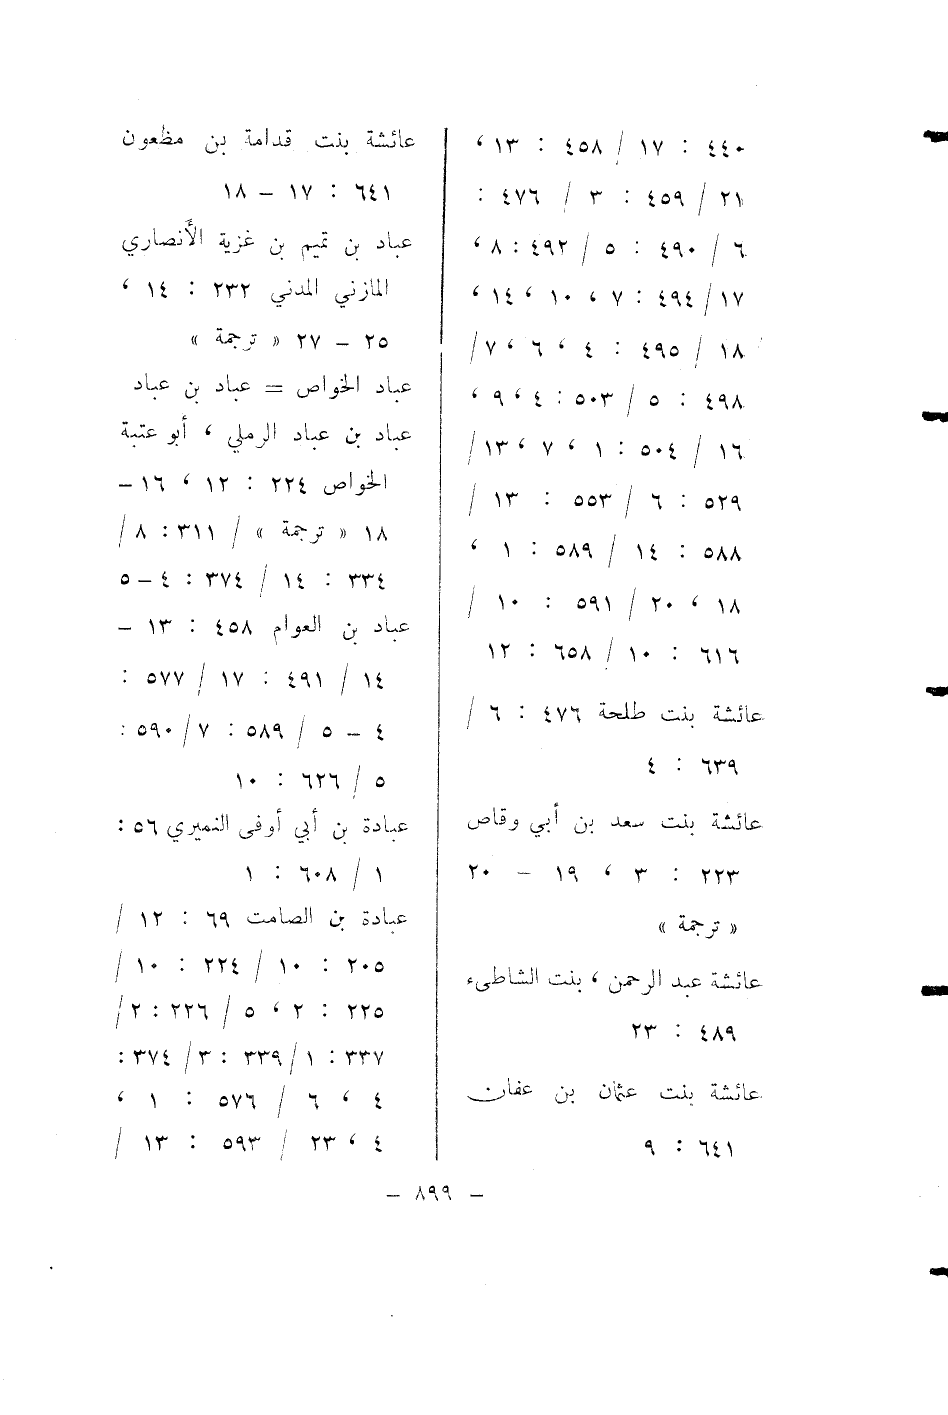 ٤٤٠ : ١٧ / ٤٥٨ : ١٣ ،
٢١ / ٤٥٩ : ٣ / ٤٧٦ :
٦ / ٤٩٠ : ٥ / ٤٩٢ : ٨ ،
١٧ / ٤٩٤ : ٧ ، ١٠ ، ١٤ ،
١٨ / ٤٩٥ : ٤ ، ٦ ، ٧ /
٤٩٨ : ٥ / ٥٠٣ : ٤ ، ٩ ،
١٦ / ٥٠٤ : ١ ، ٧ ، ١٣ /
٥٢٩ : ٦ / ٥٥٣ : ١٣ /
٥٨٨ : ١٤ / ٥٨٩ : ١ ،
١٨ ، ٢٠ / ٥٩١ : ١٠ /
٦١٦ : ١٠ / ٦٥٨ : ١٢
عائشة بنت طلحة ٤٧٦ : ٦ /
٦٣٩ : ٤
عائشة بنت سعد بن أبي وقاص
٢٢٣ : ٣ ، ١٩ – ٢٠
« ترجمة »
عائشة عبد الرحمن ، بنت الشاطىء
٤٨٩ : ٢٣
عائشة بنت عثمان بن عفان
٦٤١ : ٩
عائشة بنت قدامة بن مظعون
٦٤١ : ١٧ – ١٨
عباد بن تميم بن غزية الأنصاري
المازني المدني ٢٣٢ : ١٤ ،
٢٥ – ٢٧ « ترجمة »
عباد الخواص = عباد بن عباد
عباد بن عباد الرملي ، أبو عتبة
الخواص ٢٢٤ : ١٢ ، ١٦ –
١٨ « ترجمة » / ٣١١ : ٨ /
٣٣٤ : ١٤ / ٣٧٤ : ٤ – ٥
عباد بن العوام ٤٥٨ : ١٣ –
١٤ / ٤٩١ : ١٧ / ٥٧٧ :
٤ – ٥ / ٥٨٩ : ٧ / ٥٩٠ :
٥ / ٦٢٦ : ١٠
عبادة بن أبي أوفى النميري ٥٦ :
١ / ٦٠٨ : ١
عبادة بن الصامت ٦٩ : ١٢ /
٢٠٥ : ١٠ / ٢٢٤ : ١٠ /
٢٢٥ : ٢ ، ٥ / ٢٢٦ : ٢ /
٣٣٧ : ١ / ٣٣٩ : ٣ / ٣٧٤ :
٤ ، ٦ / ٥٧٦ : ١ ،
٤ ، ٢٣ / ٥٩٣ : ١٣ /
– ٨٩٩ –